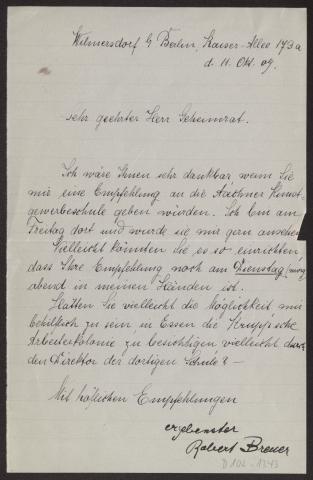 Wilmersdorf b/ Berlin, Kaiser-Allee 173a
d. 11. Okt. 09.
sehr geehrter Herr Geheimrat.
Ich wäre Ihnen sehr dankbar wenn Sie
mir eine Empfehlung an die Aachner Kunst-
gewerbeschule geben würden. Ich bin am
Freitag dort und würde sie mir gern ansehen
Vielleicht könnten Sie es so einrichten,
dass Ihre Empfehlung noch am Dienstag
abend in meinen Händen ist.
Hätten Sie vielleicht die Möglichkeit mir
behilflich zu sein, in Essen die Krupp'sche
Arbeiterkolonie zu besichtigen vielleicht durch
den Direktor der dortigen Schule? —
Mit höflichen Empfehlungen
ergebenster
Robert Breuer
D 102 - 1243